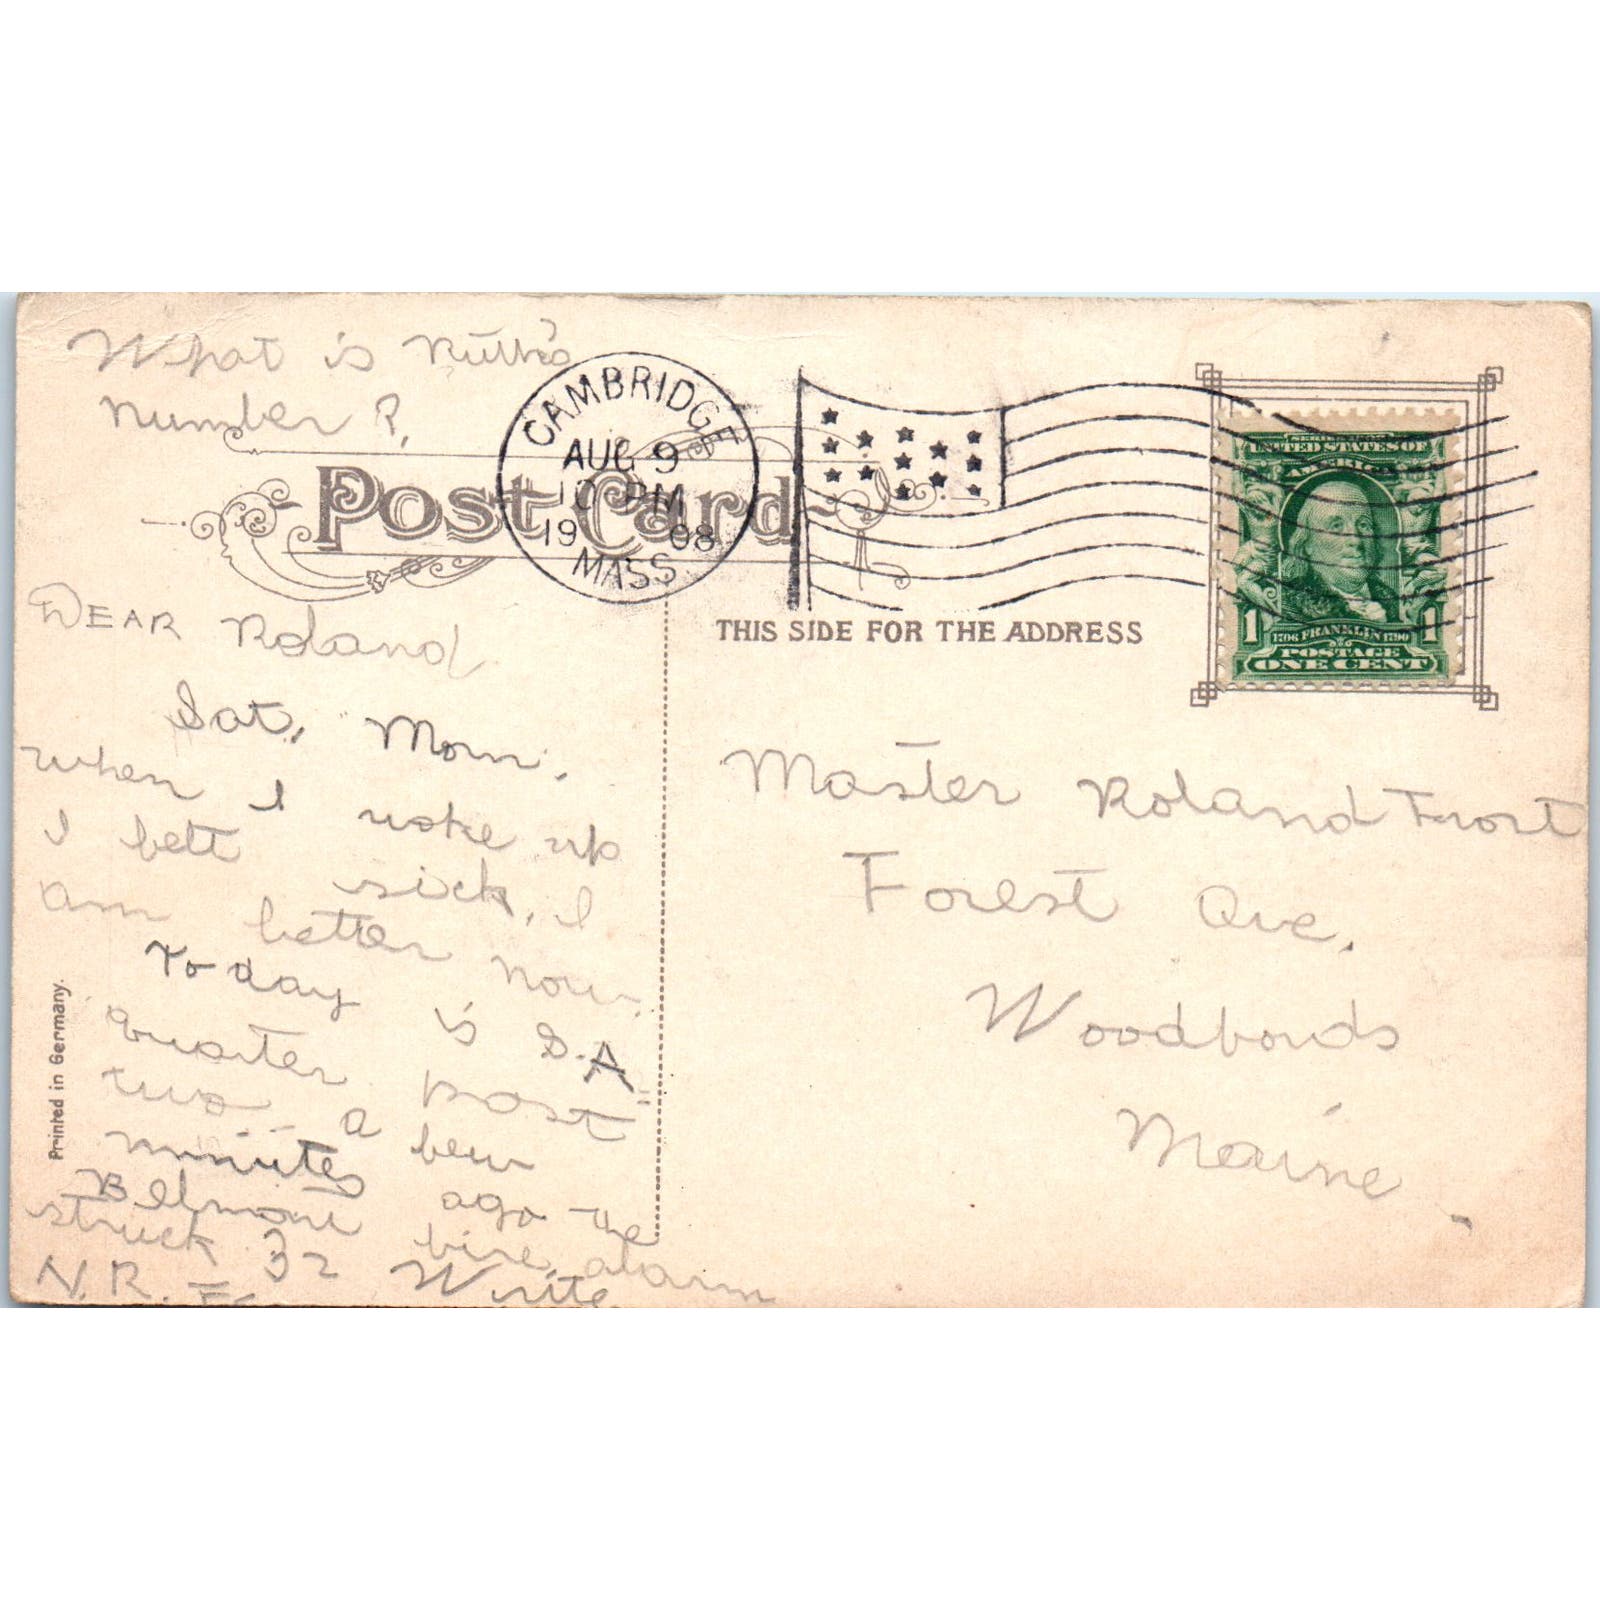 What is Ruth's
Number ?.
CAMBRIDGE
AUG 9
10 PM
19 08
MASS
Post Card
SERIES 1902
UNITED STATES OF
AMERICA
1 1
1706 FRANKLIN 1790
POSTAGE
ONE CENT
THIS SIDE FOR THE ADDRESS
DEAR Roland
Sat. Morn.
when I woke up
I felt sick, I
am better now.
To day is S.A.
quarter past
two a few
minutes ago the
Belmont fire alarm
struck 32 Write
N.R.
Master Roland Frost
Forest Ave.
Woodfords
Maine
Printed in Germany.